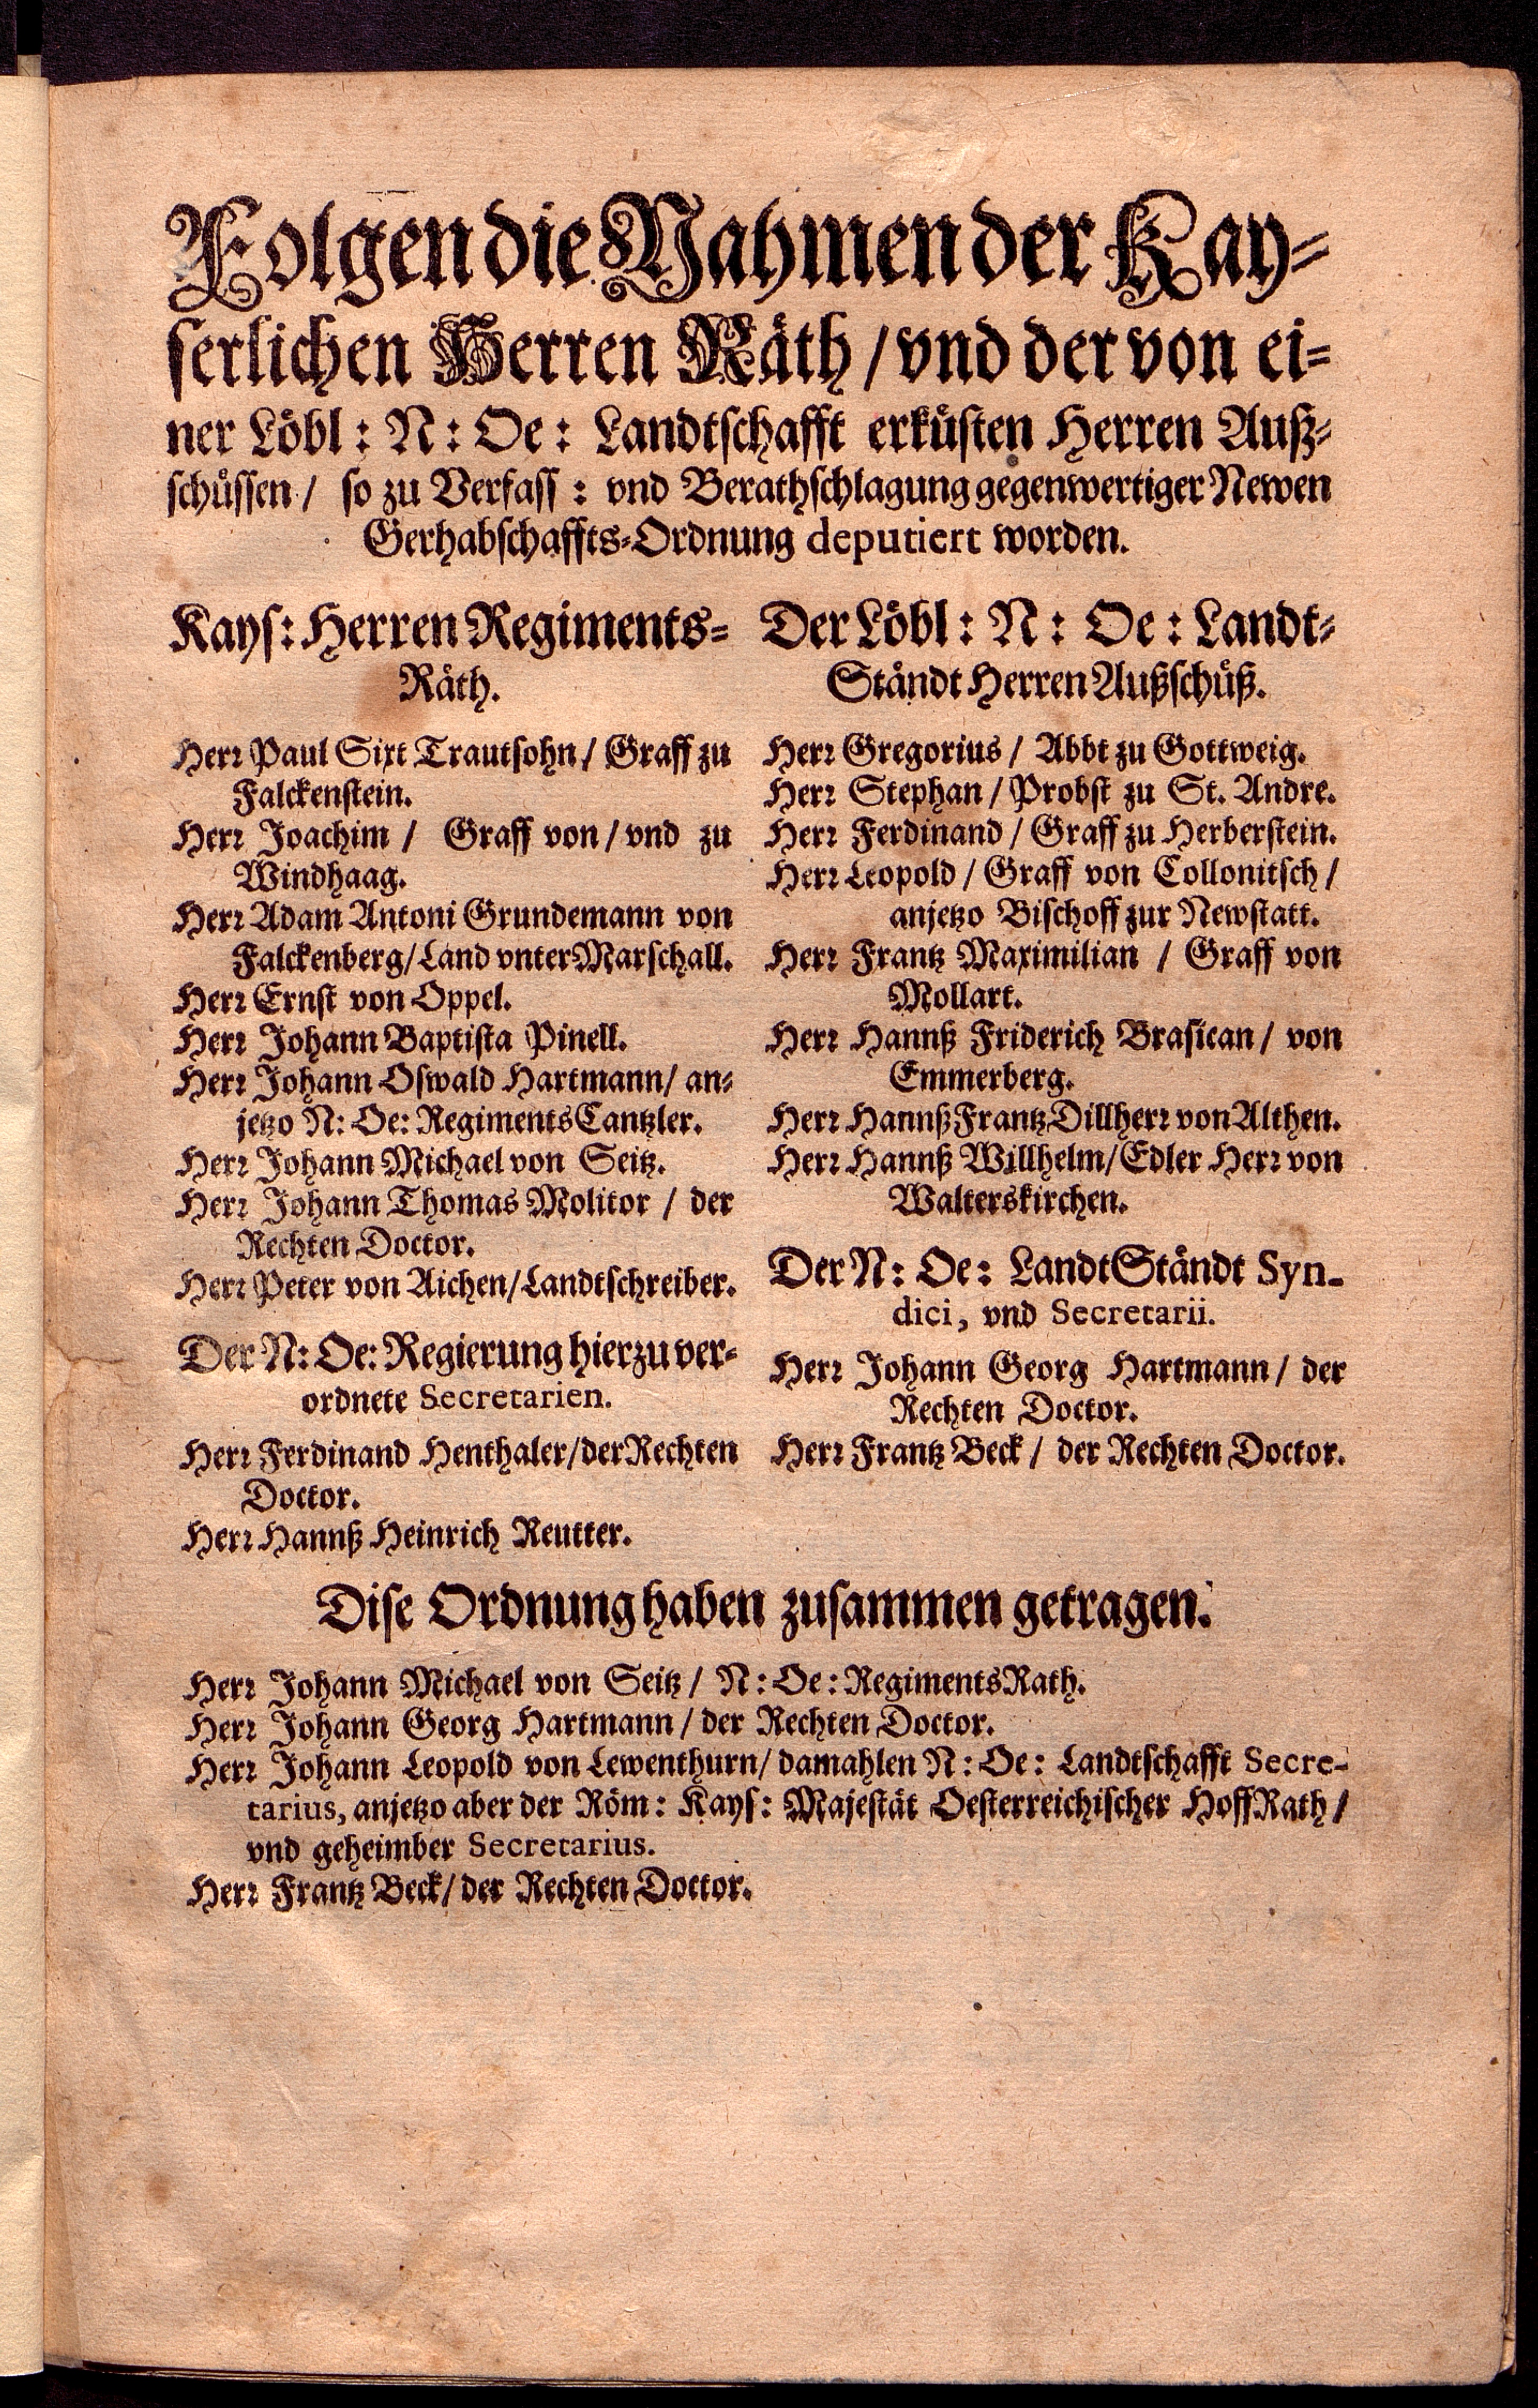 Folgen die Nahmen der Kay-
serlichen Herren Räth / vnd der von ei-
ner Löbl: N: Oe: Landtschafft erküsten Herren Auß-
schüssen / so zu Verfass: vnd Berathschlagung gegenwertiger Newen
Gerhabschaffts-Ordnung deputiert worden.
Kays: Herren Regiments-
Räth.
Herr Paul Sixt Trautsohn / Graff zu
Falckenstein.
Herr Joachim / Graff von / vnd zu
Windhaag.
Herr Adam Antoni Grundemann von
Falckenberg / Land vnter Marschall.
Herr Ernst von Oppel.
Herr Johann Baptista Pinell.
Herr Johann Oswald Hartmann / an-
jetzo N: Oe: Regiments Cantzler.
Herr Johann Michael von Seitz.
Herr Johann Thomas Molitor / der
Rechten Doctor.
Herr Peter von Aichen / Landtschreiber.
Der N: Oe: Regierung hierzu ver-
ordnete Secretarien.
Herr Ferdinand Henthaler / der Rechten
Doctor.
Herr Hannß Heinrich Reutter.
Der Löbl: N: Oe: Landt-
Ständt Herren Außschüß.
Herr Gregorius / Abbt zu Gottweig.
Herr Stephan / Probst zu St. Andre.
Herr Ferdinand / Graff zu Herberstein.
Herr Leopold / Graff von Collonitsch /
anjetzo Bischoff zur Newstatt.
Herr Frantz Maximilian / Graff von
Mollart.
Herr Hannß Friderich Brasican / von
Emmerberg.
Herr Hannß Frantz Dillherr von Althen.
Herr Hannß Willhelm / Edler Herr von
Walterskirchen.
Der N: Oe: LandtStändt Syn-
dici, vnd Secretarii.
Herr Johann Georg Hartmann / der
Rechten Doctor.
Herr Frantz Beck / der Rechten Doctor.
Dise Ordnung haben zusammen getragen.
Herr Johann Michael von Seitz / N: Oe: RegimentsRath.
Herr Johann Georg Hartmann / der Rechten Doctor.
Herr Johann Leopold von Lewenthurn / damahlen N: Oe: Landtschafft Secre-
tarius, anjetzo aber der Röm: Kays: Majestät Oesterreichischer HoffRath /
vnd geheimber Secretarius.
Herr Frantz Beck / der Rechten Doctor.